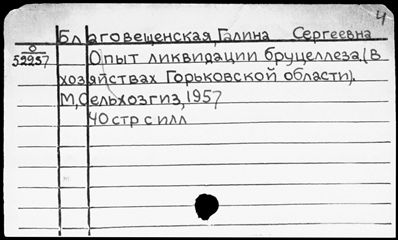 4
Благовещенская, Галина Сергеевна
О
52257
Опыт ликвидации бруцеллеза. (В
хозяйствах Горьковской области).
М, Сельхозгиз, 1957
40 стр с илл